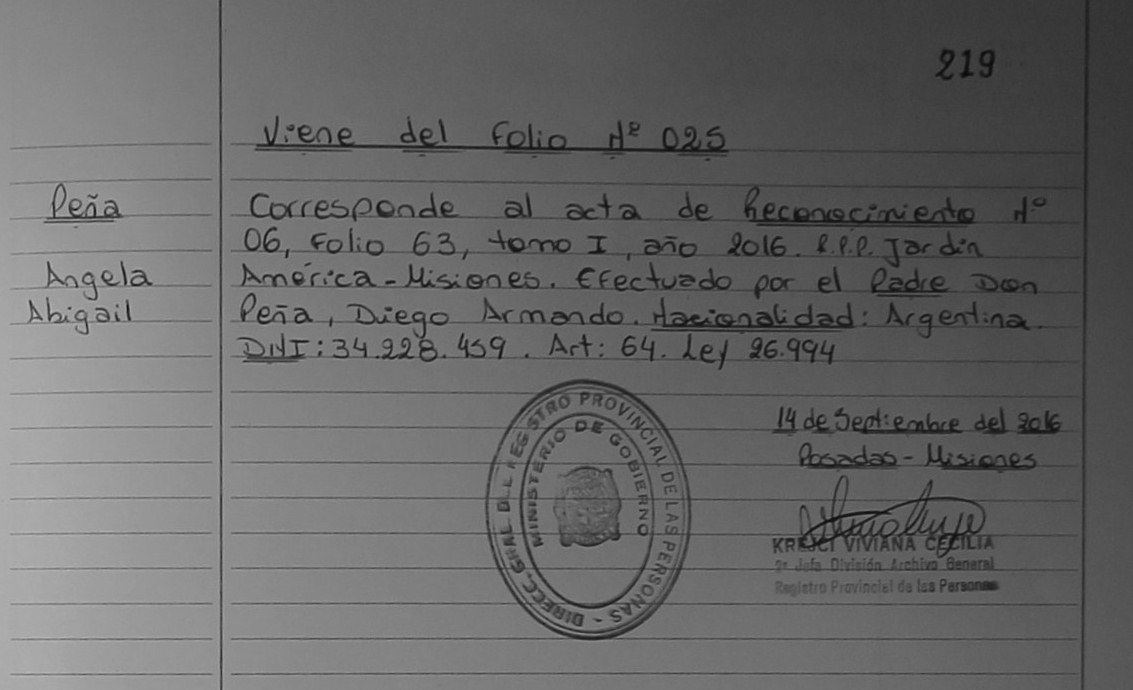 219
Viene del folio Nº 025
Peña
Angela
Abigail
Corresponde al acta de Reconocimiento Nº
06, Folio 63, tomo I, año 2016. R.P.P. Jardin
América - Misiones. Efectuado por el Padre Don
Peña, Diego Armando. Nacionalidad: Argentina.
DNI: 34.228.459. Art: 64. Ley 26.994
14 de Septiembre del 2016
Posadas - Misiones
KREJCI VIVIANA CECILIA
Jefa División Archivo General
Registro Provincial de las Personas
DIRECC. GRAL DEL REGISTRO PROVINCIAL DE LAS PERSONAS -
MINISTERIO DE GOBIERNO